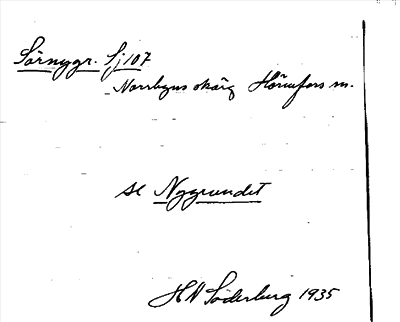 Sörnygr. Sj 107
Norrbyns skärg Hörnefors m.
se Nygrundet
HN Söderberg 1935